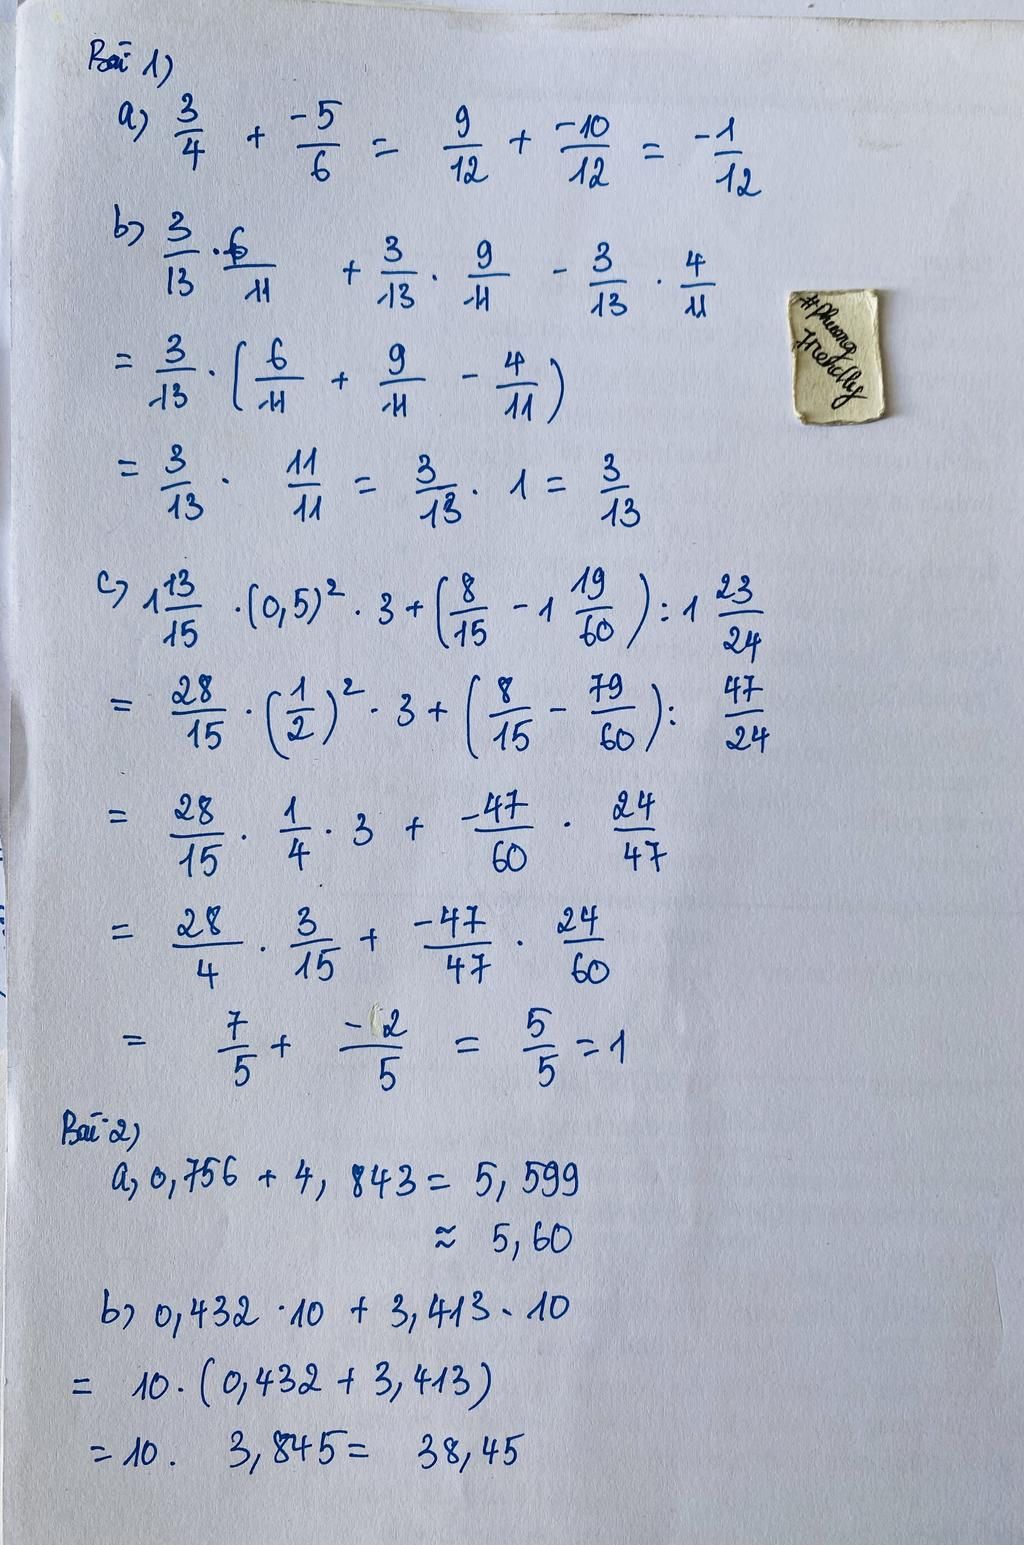 Bài 1)
a) 3/4 + -5/6 = 9/12 + -10/12 = -1/12
b) 3/13 · 6/11 + 3/13 · 9/11 - 3/13 · 4/11
= 3/13 · (6/11 + 9/11 - 4/11)
= 3/13 · 11/11 = 3/13 · 1 = 3/13
#Phuong
Friendly
c) 1 13/15 · (0,5)² · 3 + (8/15 - 1 19/60) : 1 23/24
= 28/15 · (1/2)² · 3 + (8/15 - 79/60) : 47/24
= 28/15 · 1/4 · 3 + -47/60 · 24/47
= 28/4 · 3/15 + -47/47 · 24/60
= 7/5 + -2/5 = 5/5 = 1
Bài 2)
a, 0,756 + 4,843 = 5,599
≈ 5,60
b) 0,432 · 10 + 3,413 · 10
= 10 · (0,432 + 3,413)
= 10 . 3,845 = 38,45